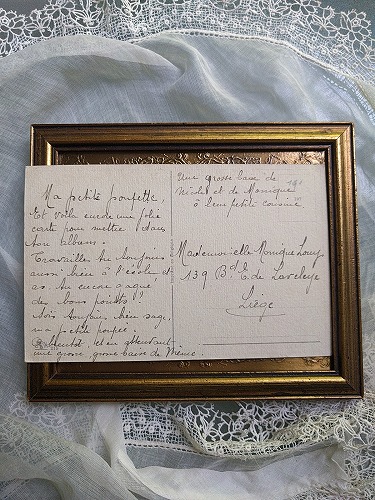 Ma petite poupette,
Et voilà encore une jolie
carte pour mettre dans
ton album.
Travailles tu toujours
aussi bien à l'école et
as tu encore gagné
des bons points?
Sois toujours bien sage,
ma petite poupée.
À bientôt, et en attendant
une grosse, grosse baise de Mémé.
Une grosse baise de
et de Monique
à leur petite cousine
Mademoiselle Monique
139 Bd E. de Laveleye
Liège